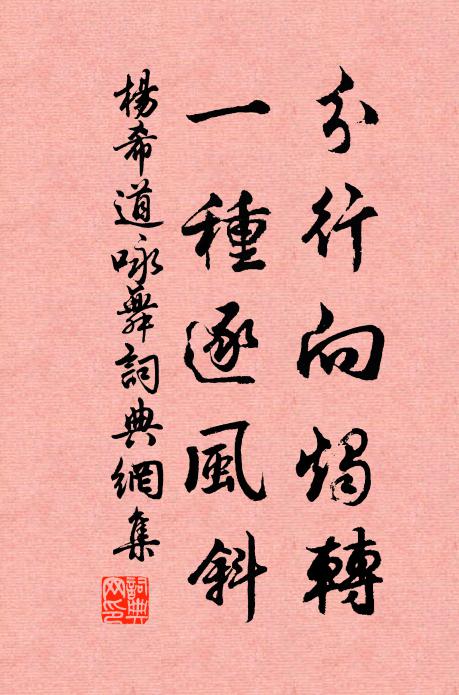 分行向燭轉
一種逐風斜
楊希道詠舞詞典網集
詞典网印